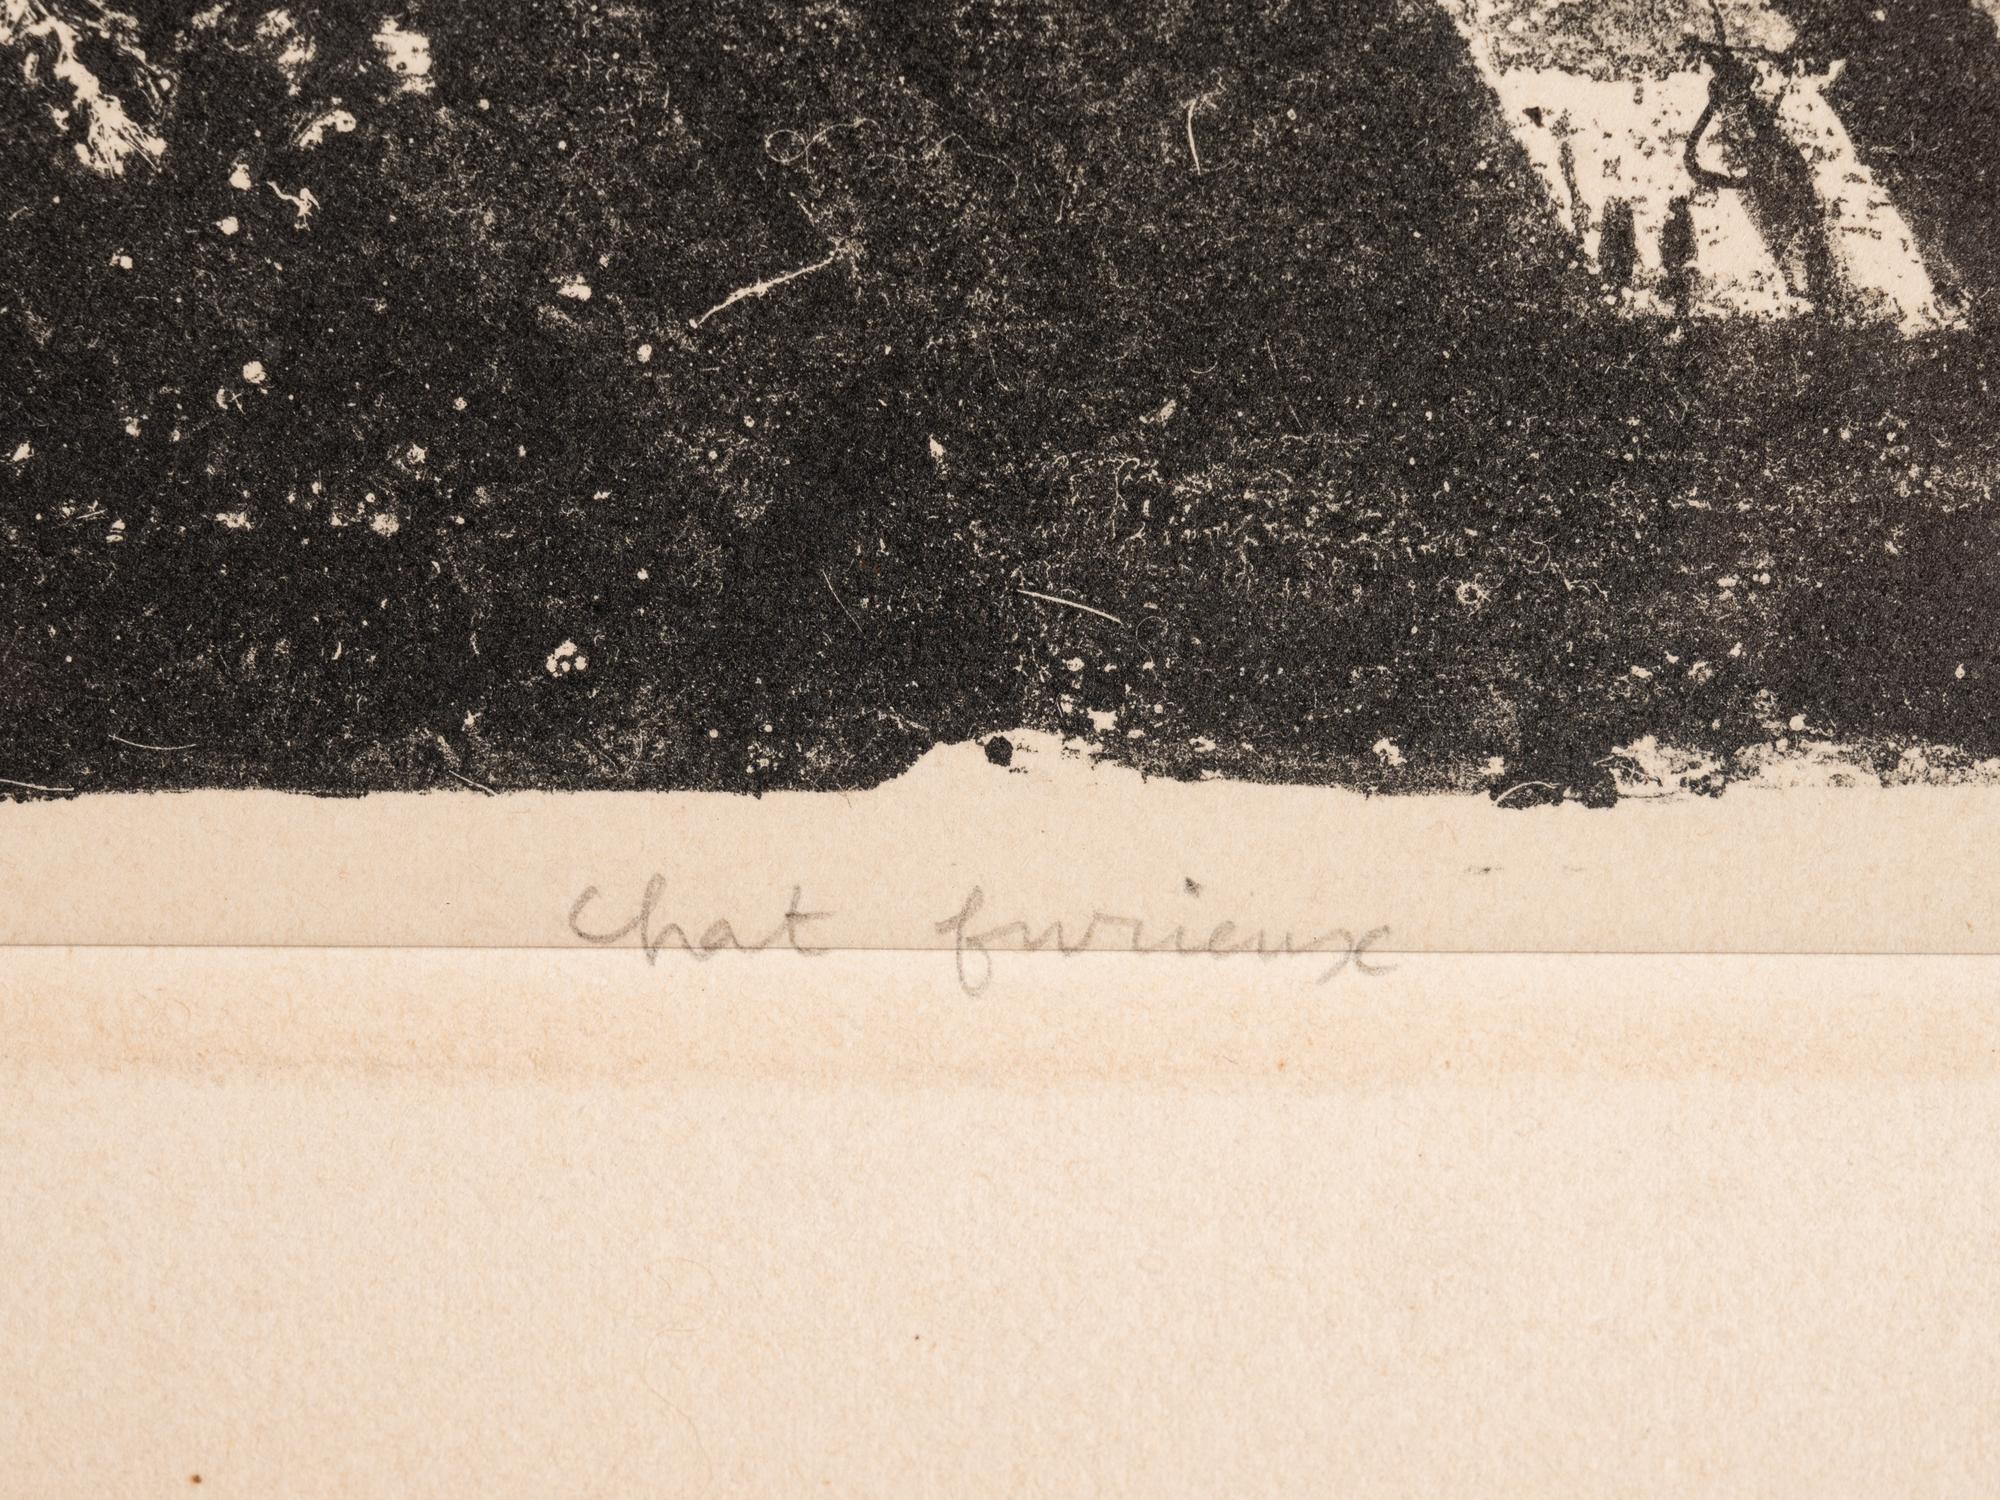 Chat furieux